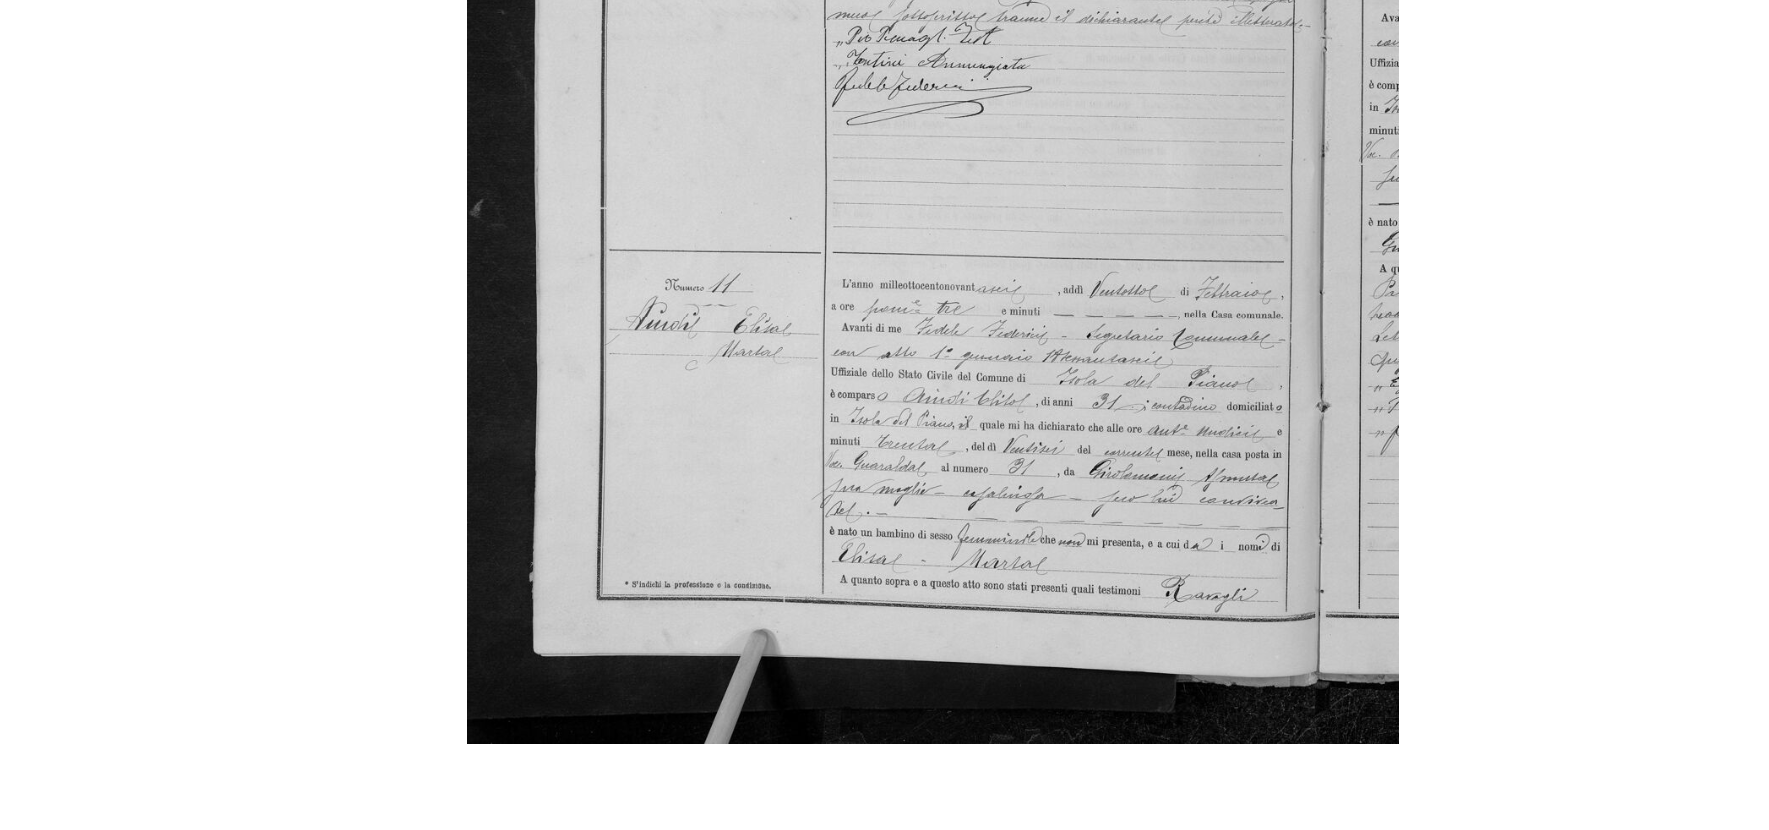 meco sottoscritto tranne il dichiarante perché illetterato.
" Pio Renagli Test
" Tontini Annunziata
Fedele Federici
Numero 11
Aiudi Elisa
Marta
L'anno milleottocentonovantasei, addì Ventotto di Febbraio,
a ore pome tre e minuti — — — — —, nella Casa comunale.
Avanti di me Fedele Federici - Segretario Comunale -
con atto 1° gennaio
Uffiziale dello Stato Civile del Comune di Isola del Piano,
è comparso Aiudi, di anni 31, contadino domiciliato
in Isola del Piano, il quale mi ha dichiarato che alle ore ante undici e
minuti trenta, del dì Ventisei del corrente mese, nella casa posta in
Voc. Guaralda al numero 31, da Girolomoni
sua moglie - casalinga - seco lui convivente
te. —
è nato un bambino di sesso femminile che non mi presenta, e a cui dà i nomi di
Elisa - Marta
A quanto sopra e a questo atto sono stati presenti quali testimoni Ravagli
* S'indichi la professione o la condizione.
Ava
con
Uffizia
è comp
in
minuti
Voc.
è nato
A qu